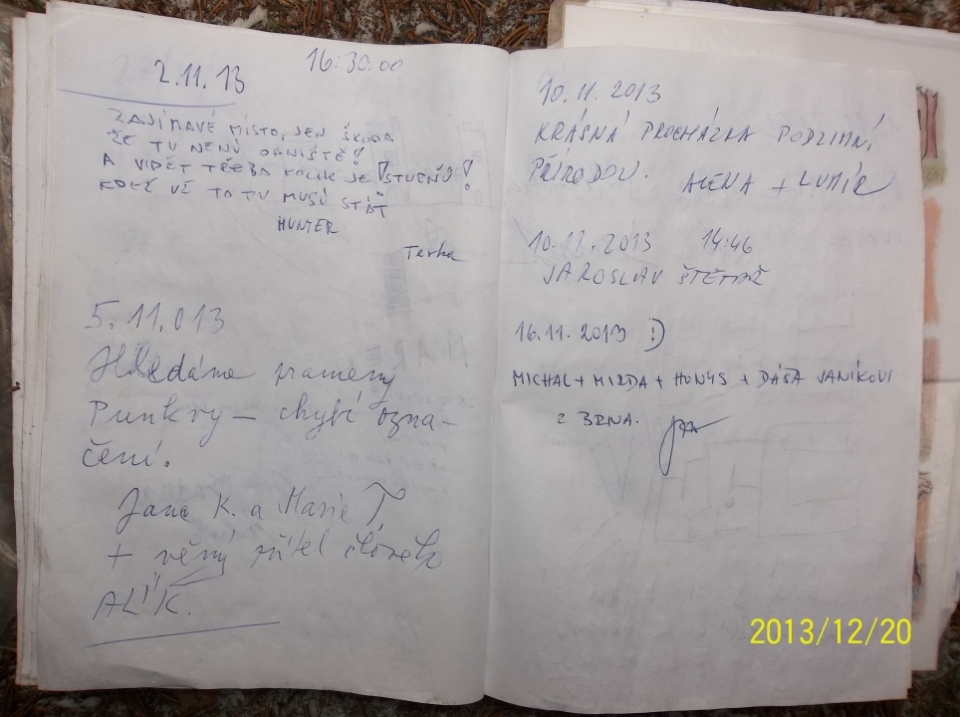 2.11.13 16:30.00
ZAJÍMAVÉ MÍSTO, JEN ŠKODA
ŽE TU NENÍ OHNIŠTĚ!
A VIDĚT TŘEBA KOLIK JE STUPŇŮ!
KDYŽ UŽ TO TU MUSÍ STÁT
HUNTER
Terka
5.11.013
Hledáme prameny
Punkvy – chybí ozna-
čení.
Jana K. a Marie T
+ věrný přítel člověka
ALÍK.
10.11.2013
KRÁSNÁ PROCHÁZKA PODZIMNÍ
PŘÍRODOU. ALENA + LUMÍR
10.11.2013 14:46
JAROSLAV
16.11.2013 :)
MICHAL + MIRDA + HONYS + DÁŠA JANÍKOVI
Z BRNA.
2013/12/20